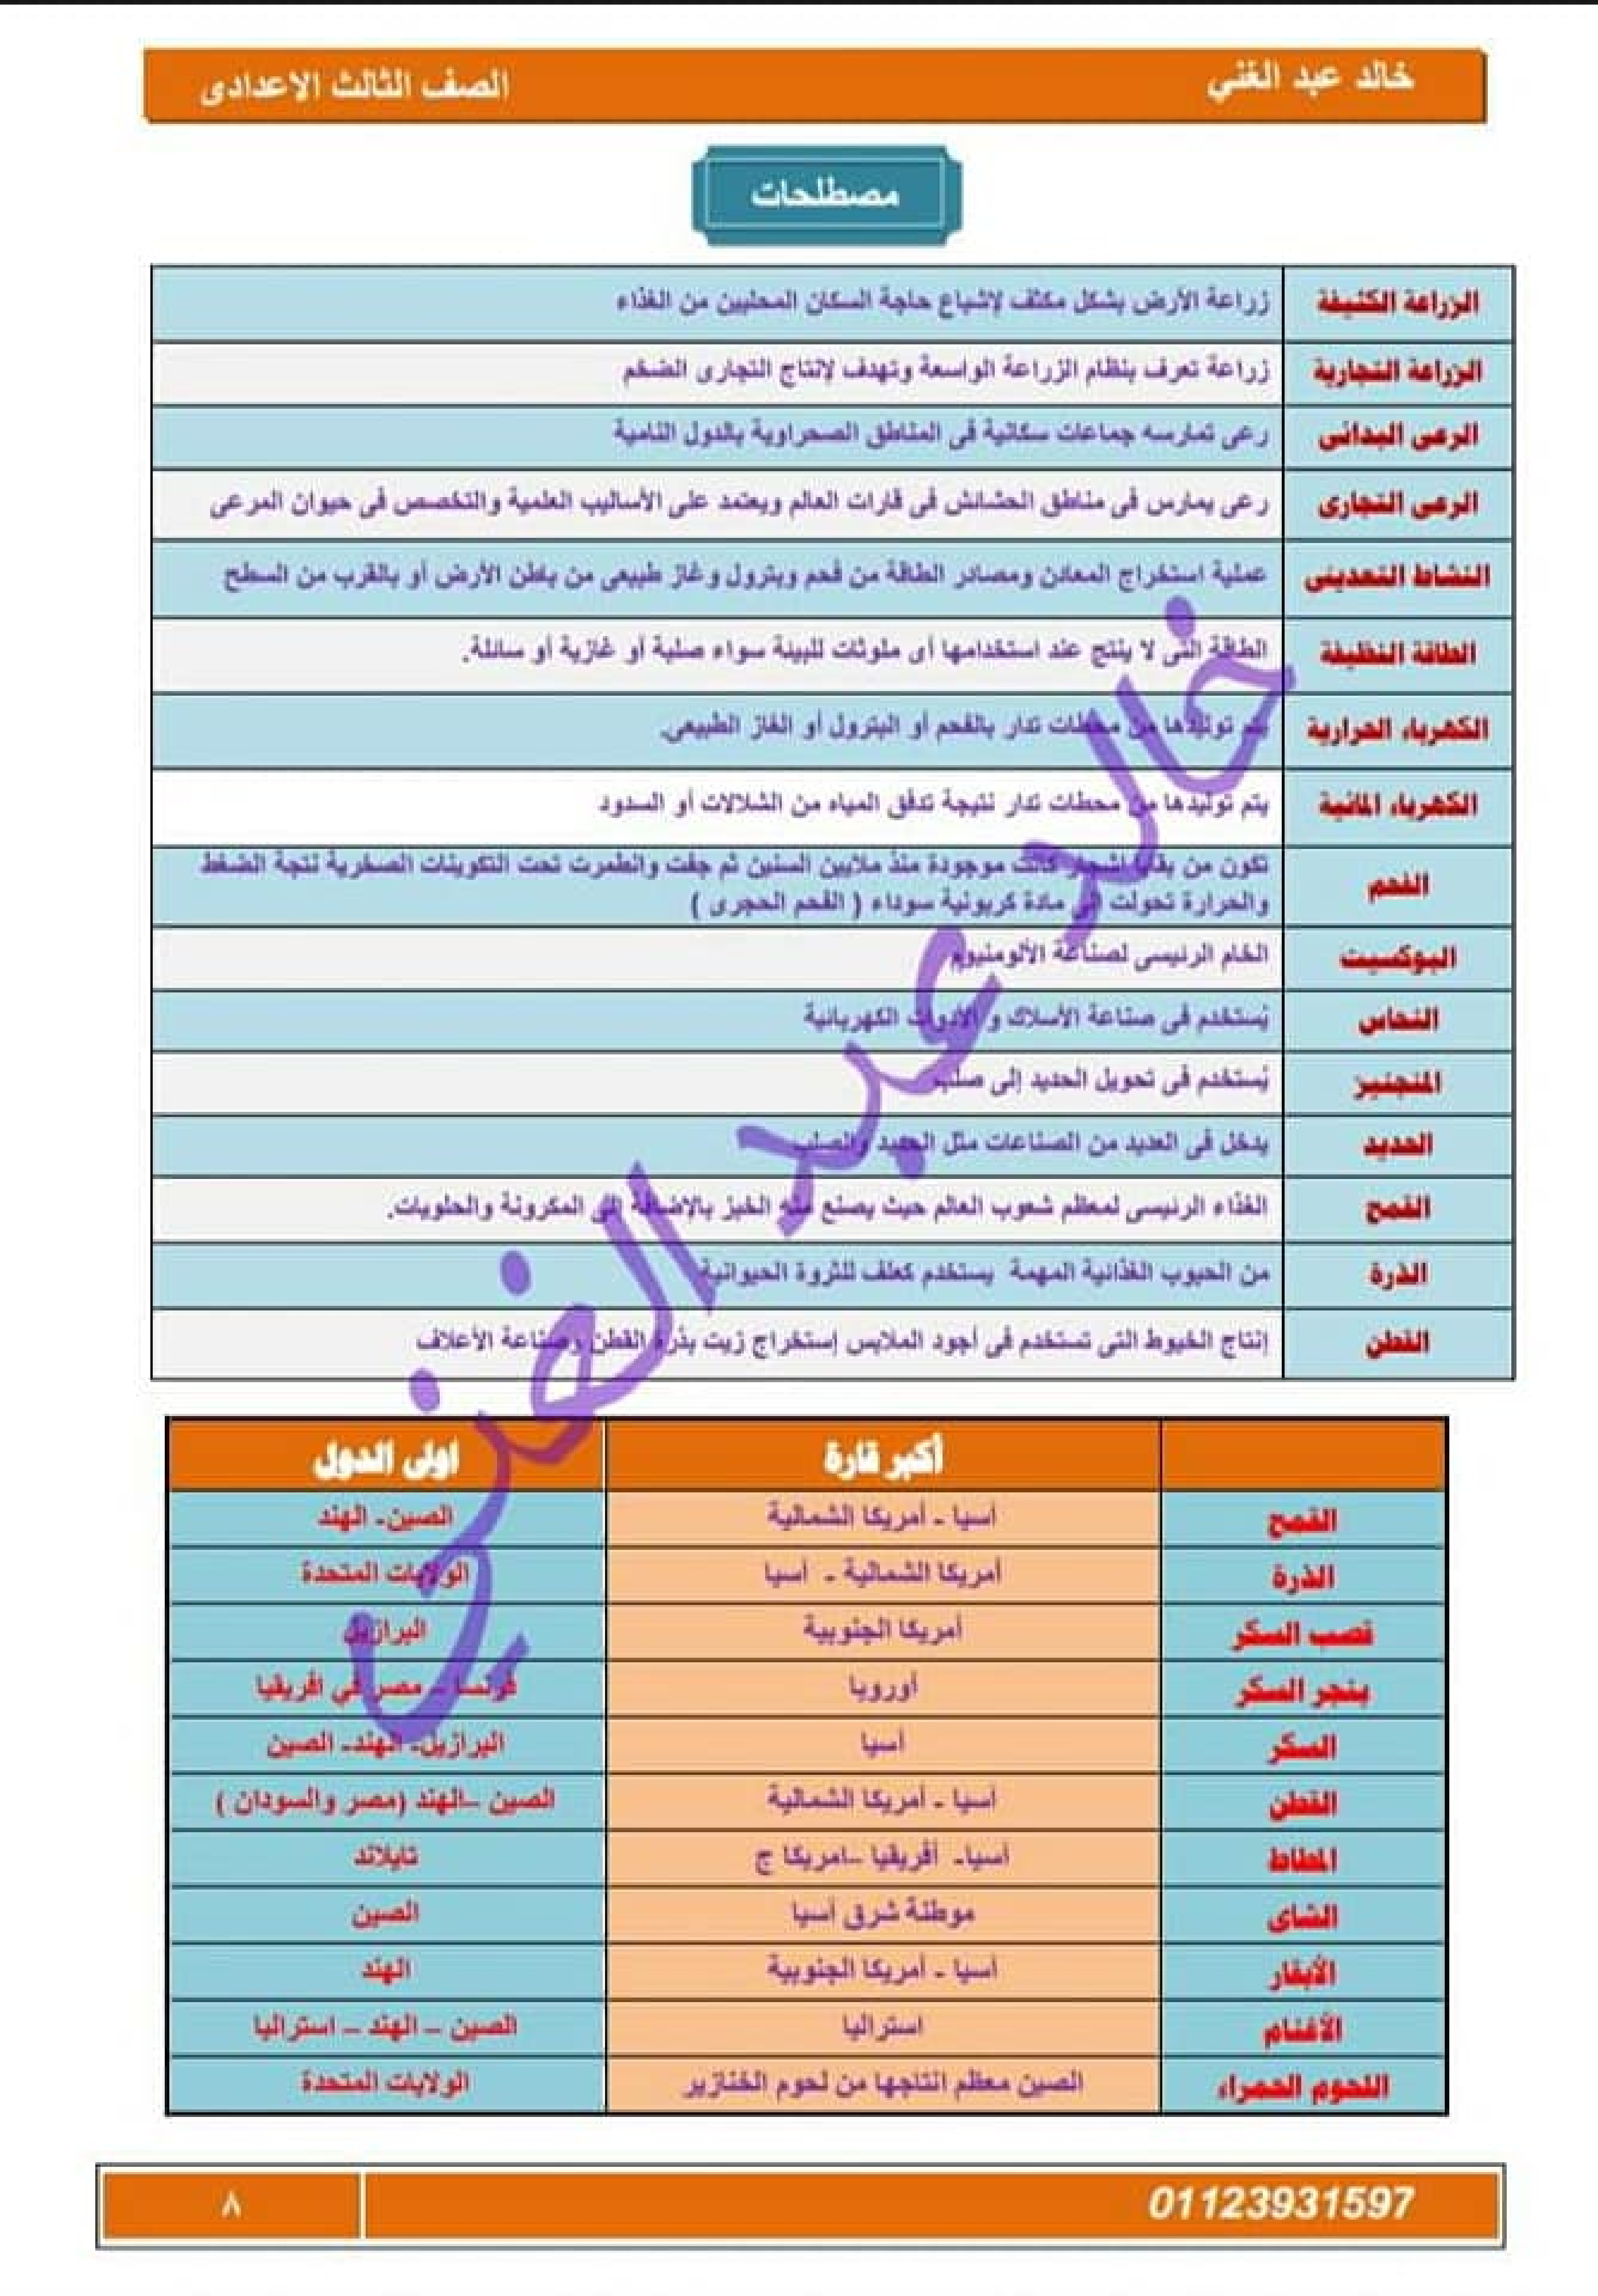 خالد عبد الغني
الصف الثالث الاعدادى
مصطلحات
الزراعة الكثيفة زراعة الأرض بشكل مكثف لإشباع حاجة السكان المحليين من الغذاء
الزراعة التجارية زراعة تعرف بنظام الزراعة الواسعة وتهدف لإنتاج التجارى الضخم
الرعى البدائى رعى تمارسه جماعات سكانية فى المناطق الصحراوية بالدول النامية
الرعى التجارى رعى يمارس فى مناطق الحشائش فى قارات العالم ويعتمد على الأساليب العلمية والتخصص فى حيوان المرعى
النشاط التعدينى عملية استخراج المعادن ومصادر الطاقة من فحم وبترول وغاز طبيعى من باطن الأرض أو بالقرب من السطح
الطاقة النظيفة الطاقة التى لا ينتج عند استخدامها أى ملوثات للبيئة سواء صلبة أو غازية أو سائلة.
الكهرباء الحرارية يتم توليدها من محطات تدار بالفحم أو البترول أو الغاز الطبيعى.
الكهرباء المائية يتم توليدها من محطات تدار نتيجة تدفق المياه من الشلالات أو السدود
الفحم تكون من بقايا اشجار كانت موجودة منذ ملايين السنين ثم جفت وانطمرت تحت التكوينات الصخرية نتجة الضغط
والحرارة تحولت الى مادة كربونية سوداء ( الفحم الحجرى )
البوكسيت الخام الرئيسى لصناعة الألومنيوم
النحاس يُستخدم فى صناعة الأسلاك و الأدوات الكهربائية
المنجنيز يُستخدم فى تحويل الحديد إلى صلب
الحديد يدخل فى العديد من الصناعات مثل الحديد والصلب
القمح الغذاء الرئيسى لمعظم شعوب العالم حيث يصنع منه الخبز بالإضافة إلى المكرونة والحلويات.
الذرة من الحبوب الغذائية المهمة يستخدم كعلف للثروة الحيوانية
القطن إنتاج الخيوط التى تستخدم فى أجود الملابس إستخراج زيت بذرة القطن وصناعة الأعلاف
خالد عبد الغني
أكبر قارة اولى الدول
القمح أسيا - أمريكا الشمالية الصين- الهند
الذرة أمريكا الشمالية - أسيا الولايات المتحدة
قصب السكر أمريكا الجنوبية البرازيل
بنجر السكر أوروبا فرنسا – مصر في افريقيا
السكر أسيا البرازيل- الهند- الصين
القطن أسيا - أمريكا الشمالية الصين –الهند (مصر والسودان )
المطاط أسيا- أفريقيا –امريكا ج تايلاند
الشاى موطنة شرق أسيا الصين
الأبقار أسيا - أمريكا الجنوبية الهند
الأغنام استراليا الصين – الهند – استراليا
اللحوم الحمراء الصين معظم انتاجها من لحوم الخنازير الولايات المتحدة
01123931597
٨